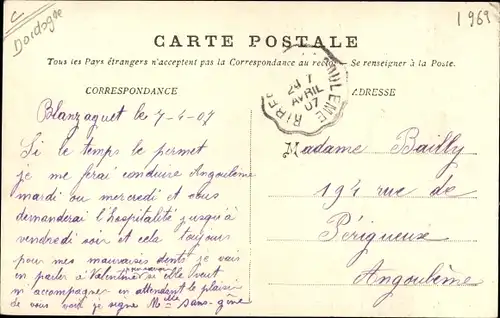 C
Dordogne
1969
CARTE POSTALE
Tous les Pays étrangers n'acceptent pas la Correspondance au recto. - Se renseigner à la Poste.
CORRESPONDANCE
ADRESSE
RIBE ULEME
7
AVRIL
07
Blanzaguet le 7-4-07
Si le temps le permet
je me ferai conduire Angoulème
mardi ou mercredi et vous
demanderai l'hospitalité jusqu'à
vendredi soir et cela toujours
pour mes mauvaises dents je vais
en parler à Valentine pour savoir si elle veut
m accompagner en attendant le plaisir
de vous voir je signe Melle Sans-gêne
Madame Bailly
194 rue de
Périgueux
Angoulême